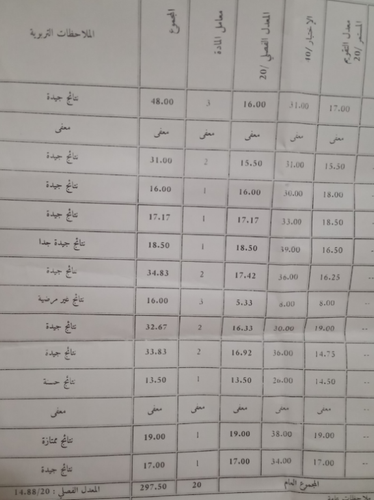 معدل التقويم المستمر/20 الاختبار/40 المعدل الفصلي /20 معامل المادة المجموع الملاحظات التربوية
17.00 31.00 16.00 3 48.00 نتائج جيدة
معفى معفى معفى معفى
15.50 31.00 15.50 2 31.00 نتائج جيدة
18.00 30.00 16.00 1 16.00 نتائج جيدة
18.50 33.00 17.17 1 17.17 نتائج جيدة
16.50 39.00 18.50 1 18.50 نتائج جيدة جدا
16.25 36.00 17.42 2 34.83 نتائج جيدة
8.00 5.33 3 16.00 نتائج غير مرضية
19.00 30.00 16.33 2 32.67 نتائج جيدة
14.75 36.00 16.92 2 33.83 نتائج جيدة
14.50 26.00 13.50 1 13.50 نتائج حسنة
معفى معفى معفى معفى
19.00 38.00 19.00 1 19.00 نتائج ممتازة
17.00 34.00 17.00 1 17.00 نتائج جيدة
المجموع العام 20 297.50 المعدل الفصلي : 14.88/20
ملاحظات